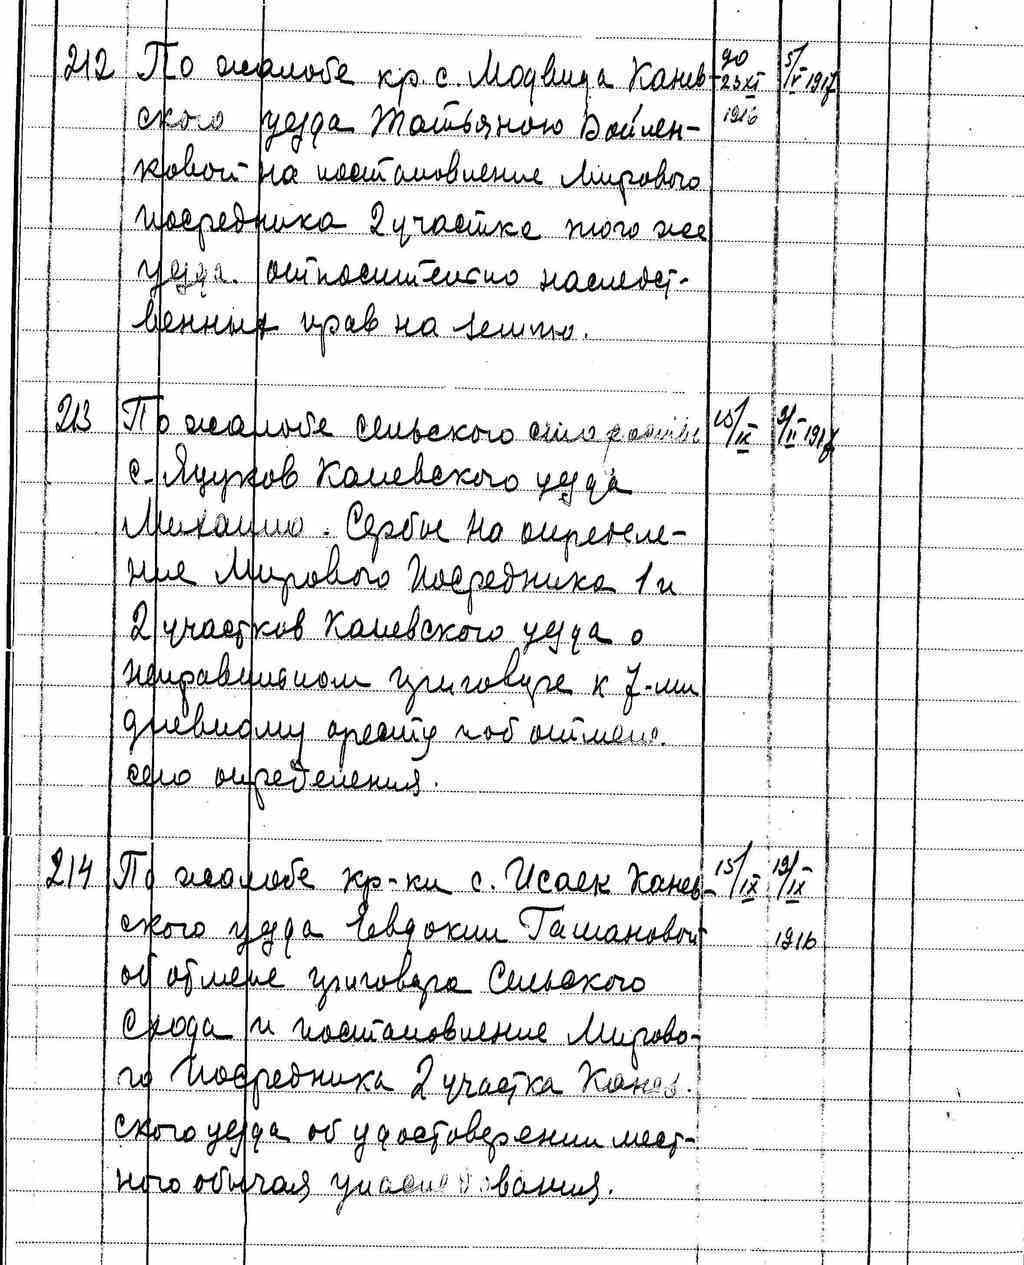 212 По жалобе кр. с. Модвида Канев- до 23 XI 1916 5/V 1917
ского уезда Татьяною Бойчен-
ковой на постановление Мирового
посредника 2 участка того же
уезда. относительно наследст-
венных прав на землю.
213 По жалобе сельского старосты 15/IX 9/II 1917
с. Яцуков Каневского уезда
Михаило. Сербы на определе-
ние Мирового Посредника 1 и
2 участков Каневского уезда о
неправильном приговоре к 7-ми
дневному аресту и об отмене.
сего определения.
214 По жалобе кр-ки с. Исаек Канев- 15/IX 19/IX
ского уезда Евдокии Гашановой 1916
об отмене приговора Сельского
Схода и постановление Мирово-
го Посредника 2 участка Канев.
ского уезда об удостоверении мест-
ного обычая унаследования.